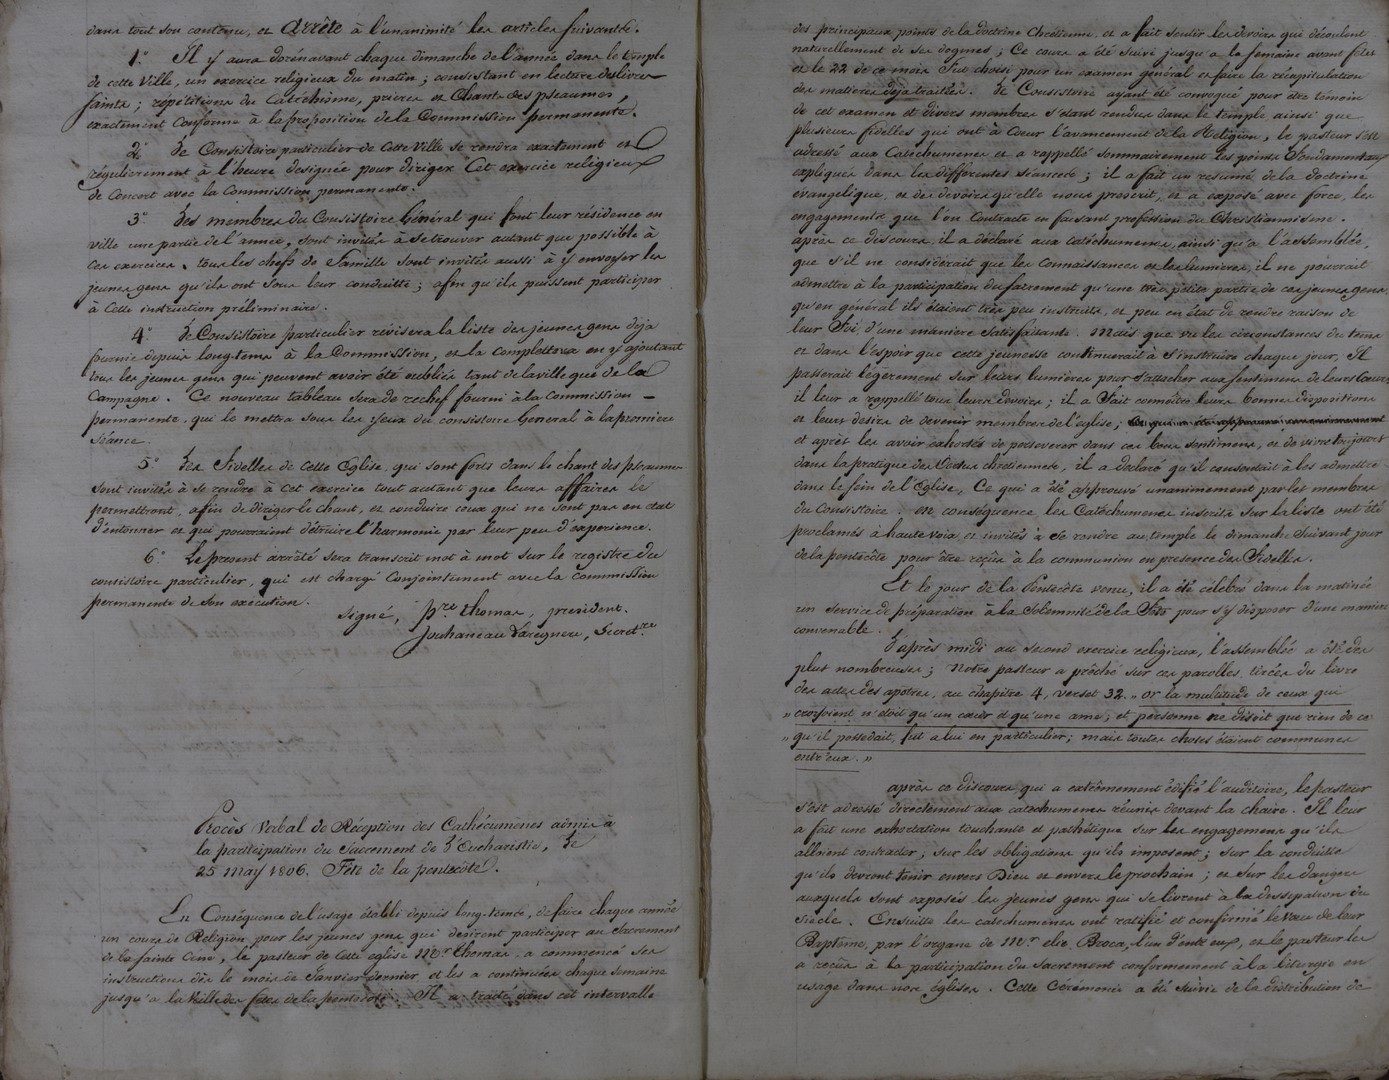 dans tout son contenu, et Arrête à l'unanimité les articles suivants.
1.° Il y aura dorénavant chaque dimanche de l'année dans le temple
de cette Ville, un exercice religieux du matin ; consistant en lecture des livres
saints ; répétitions du Catéchisme, prières et Chants des pseaumes,
exactement Conforme à la proposition de la Commission permanente.
2.° Le Consistoire particulier de Cette Ville se rendra exactement et
régulièrement à l'heure designée pour diriger Cet exercice religieux
de Concert avec la Commission permanente.
3.° Les membres du Consistoire Général qui font leur résidence en
ville une partie de l'année, sont invités à se trouver autant que possible à
ces exercices. tous les chefs de Famille sont invités aussi à y envoyer les
jeunes gens qu'ils ont sous leur conduitte ; afin qu'ils puissent participer
à Cette instruction préliminaire.
4.° Le Consistoire particulier révisera la liste des jeunes gens déja
fournie depuis long-tems à la Commission, et la complettera en y ajoutant
tous les jeunes gens qui peuvent avoir été oubliés tant de la ville que de la
Campagne. Ce nouveau tableau sera de rechef fourni à la Commission
permanente, qui le mettra sous les yeux du consistoire General à la première
séance.
5.° Les Fidelles de cette Eglise, qui sont forts dans le chant des pseaumes
sont invités à se rendre à cet exercice tout autant que leurs affaires le
permettront, afin de diriger le chant, et conduire ceux qui ne sont pas en état
d'entonner et qui pourraient détruire l'harmonie par leur peu d'experience.
6.° Le present arrêté sera transcrit mot à mot sur le registre du
consistoire particulier, qui est chargé Conjointement avec la Commission
permanente de son exécution.
Signé, p.re thomas, president.
Jouhaneau Laregnere, Secret.re
Procès Verbal de Réception des Cathécumènes admis à
la participation du Sacrement de L'Eucharistie, Le
25 may 1806. Fête de la pentecôte.
En Conséquence de l'usage établi depuis long-tems, de faire chaque année
un cours de Religion pour les jeunes gens qui désirent participer au Sacrement
de la sainte Cène, le pasteur de Cette église M.r thomas a commencé ses
instructions dès le mois de Janvier dernier et les a continuées chaque semaine
jusqu'à la veille des fêtes de la pentecôte. Il a traité dans cet intervalle
des principaux points de la doctrine Chretienne, et a fait sentir les devoirs qui découlent
naturellement de ses dogmes ; Ce cours a été suivi jusqu'à la semaine avant fêtes
et le 22 de ce mois Fut choisi pour un examen général et faire la récapitulation
des matières déja traitées. Le Consistoire ayant été convoqué pour être témoin
de cet examen et divers membres s'étant rendus dans le temple ainsi que
plusieurs fidelles qui ont à Coeur l'avancement de la Religion, le pasteur s'est
adressé aux Catéchumenes et a rappellé sommairement les points Fondamentaux
expliqués dans les differentes séances ; il a fait un resumé de la doctrine
evangelique, et des devoirs qu'elle nous prescrit, et a exposé avec force, les
engagements que l'on Contracte en faisant profession du Christiannisme.
après ce discours, il a déclaré aux catéchumenes, ainsi qu'à l'assemblée,
que s'il ne considerait que les Connaissances et les lumieres, il ne pourrait
admettre à la participation du sacrement qu'une très petite partie de ces jeunes gens,
qu'en général ils étaient très peu instruits, et peu en état de rendre raison de
leur Foi d'une manière satisfaisante. Mais que vu les circonstances du tems
et dans l'espoir que cette jeunesse continuerait à s'instruire chaque jour, Il
passerait légèrement sur leurs lumières pour s'attacher aux sentimens de leurs Coeurs,
il leur a rappellé tous leurs devoirs ; il a Fait connoître leurs bonnes dispositions
et leurs desirs de devenir membres de l'église ;
et après les avoir exhortés de perseverer dans ces bons sentimens, et de vivre toujours
dans la pratique des Vertus chretiennes, il a déclaré qu'il consentait à les admettre
dans le sein de l'Eglise, Ce qui a été approuvé unanimement par les membres
du Consistoire : en conséquence les Catéchumenes inscrits sur la liste ont été
proclamés à haute voix et invités à se rendre au temple le dimanche suivant jour
de la pentecôte pour être reçus à la communion en presence des Fidelles.
Et le jour de la Pentecôte venu, il a été célébré dans la matinée
un service de préparation à la Solemnité de la Fête pour s'y disposer d'une maniere
convenable.
L'après midi au second exercice religieux, l'assemblée a été des
plus nombreuses ; Notre pasteur a prêché sur ces parolles tirées du livre
des actes des apotres, au chapitre 4, verset 32. „ or la multitude de ceux qui
„ croyoient n'étoit qu'un coeur et qu'une ame ; et personne ne disoit que rien de ce
„ qu'il possedait, fut a lui en particulier ; mais toutes choses étaient communes
entr'eux. „
après ce discours qui a extrêmement édifié l'auditoire, le pasteur
s'est adressé directement aux catechumenes réunis devant la chaire. Il leur
a fait une exhortation touchante et pathétique sur les engagemens qu'ils
allaient contracter ; sur les obligations qu'ils imposent ; sur la conduitte
qu'ils devront tenir envers Dieu et envers le prochain ; et sur les dangers
auxquels sont exposés les jeunes gens qui se livrent à la dissipation du
siècle. Ensuitte les catechumenes ont ratifié et confirmé le Voeu de leur
Baptême, par l'organe de M.r elie Broca, l'un d'entr'eux, et le pasteur les
a reçus à la participation du Sacrement conformement à la liturgie en
usage dans nos églises. Cette Cérémonie a été Suivie de la distribution de